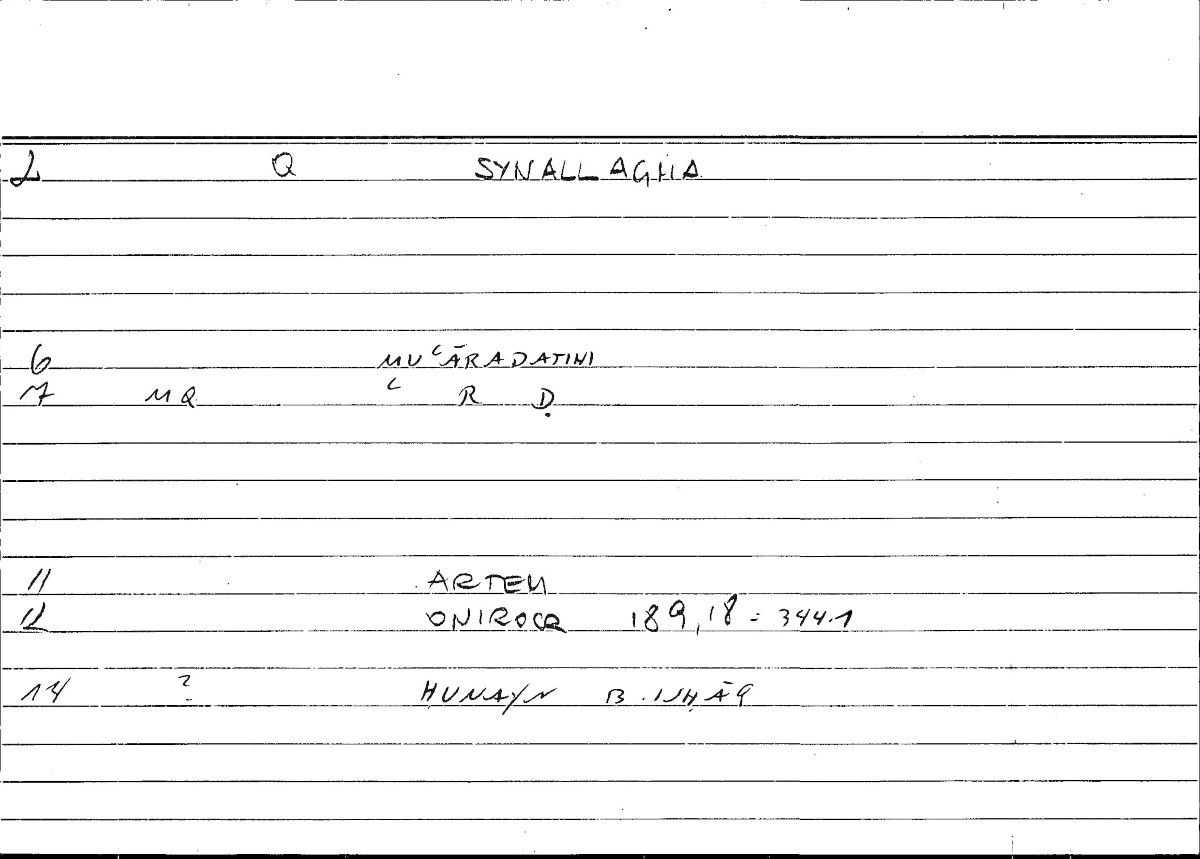 2 Q SYNALLAGMA
6 MUʿĀRADATINI
7 MQ ʿ R Ḍ
11 ARTEM
12 ONIROCR 189,18 = 344.1
14 ? ḤUNAYN B. ISḤĀQ